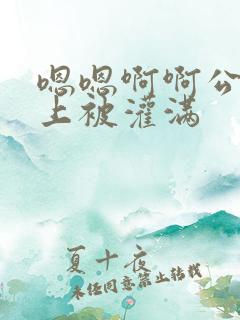 嗯嗯啊啊公
上被灌满
夏十夜
未经同意禁止转载